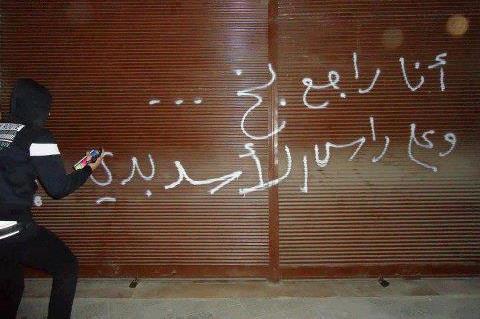 أنا راجع بخ ...
وعلى راس الأسد بدي